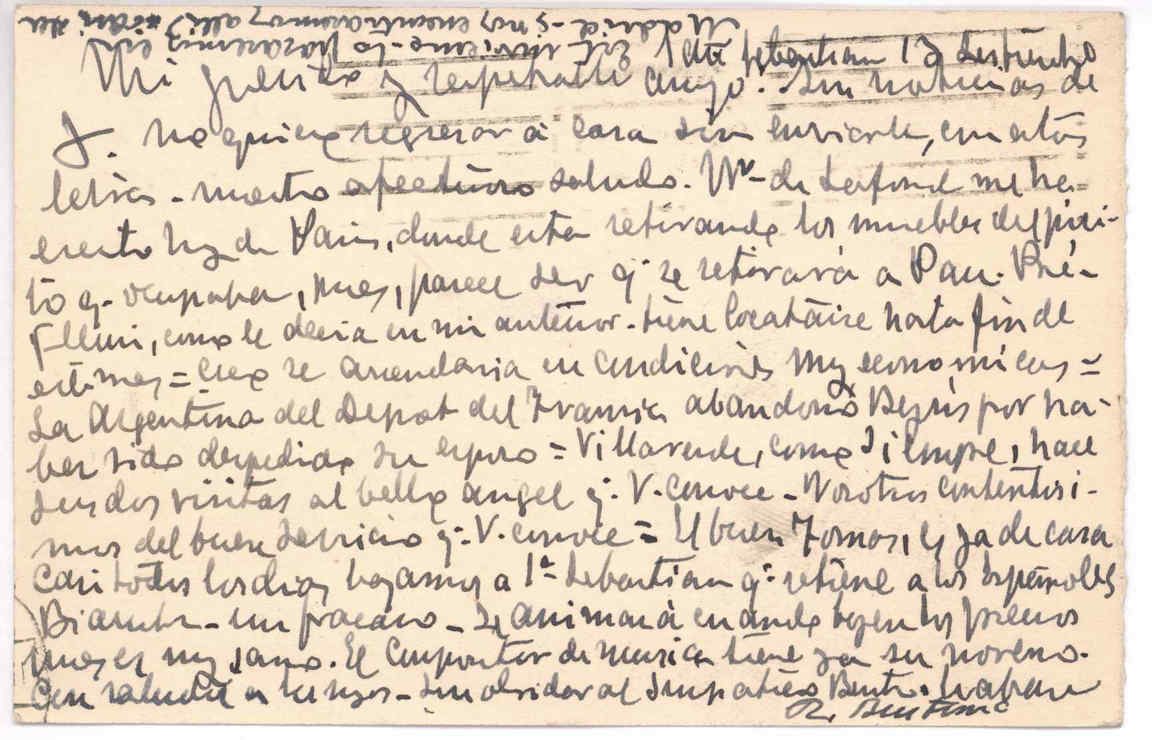 Sn Sebastian 13 Septiembre
Mi querido y respetable amigo. Sin noticias de
V. no quiero regresar a casa sin enviarle, en estas
letras - nuestro afectuoso saludo. Mr de Lafond me ha
escrito hoy de Paris, donde esta retirando los muebles del pisi-
to q. ocupaba, pues, parece ser q. se retirará a Pau.
como le decia en mi anterior - tiene locataire hasta fin de
este mes = creo se arrendaria en condiciones muy economicas =
La Argentina del Depot del Tranvia abandonó por ha-
ber sido despedido su esposo = Villaverde, como siempre, hace
sus dos visitas al bello angel q. V. conoce - Nosotros contentisi-
mos del buen servicio q. V. conoce = El buen Tomas, es ya de casa
Casi todos los dias bajamos a Sn Sebastian q. retiene a los Españoles
Biarritz - un fracaso - Se animará cuando bajen los precios
pues es muy sano. El Compositor de musica tiene ya su
Con saludos a - Sin olvidar al simpatico
Este invierno - lo pasaremos en
Madrid - ¿nos encontraremos alli?